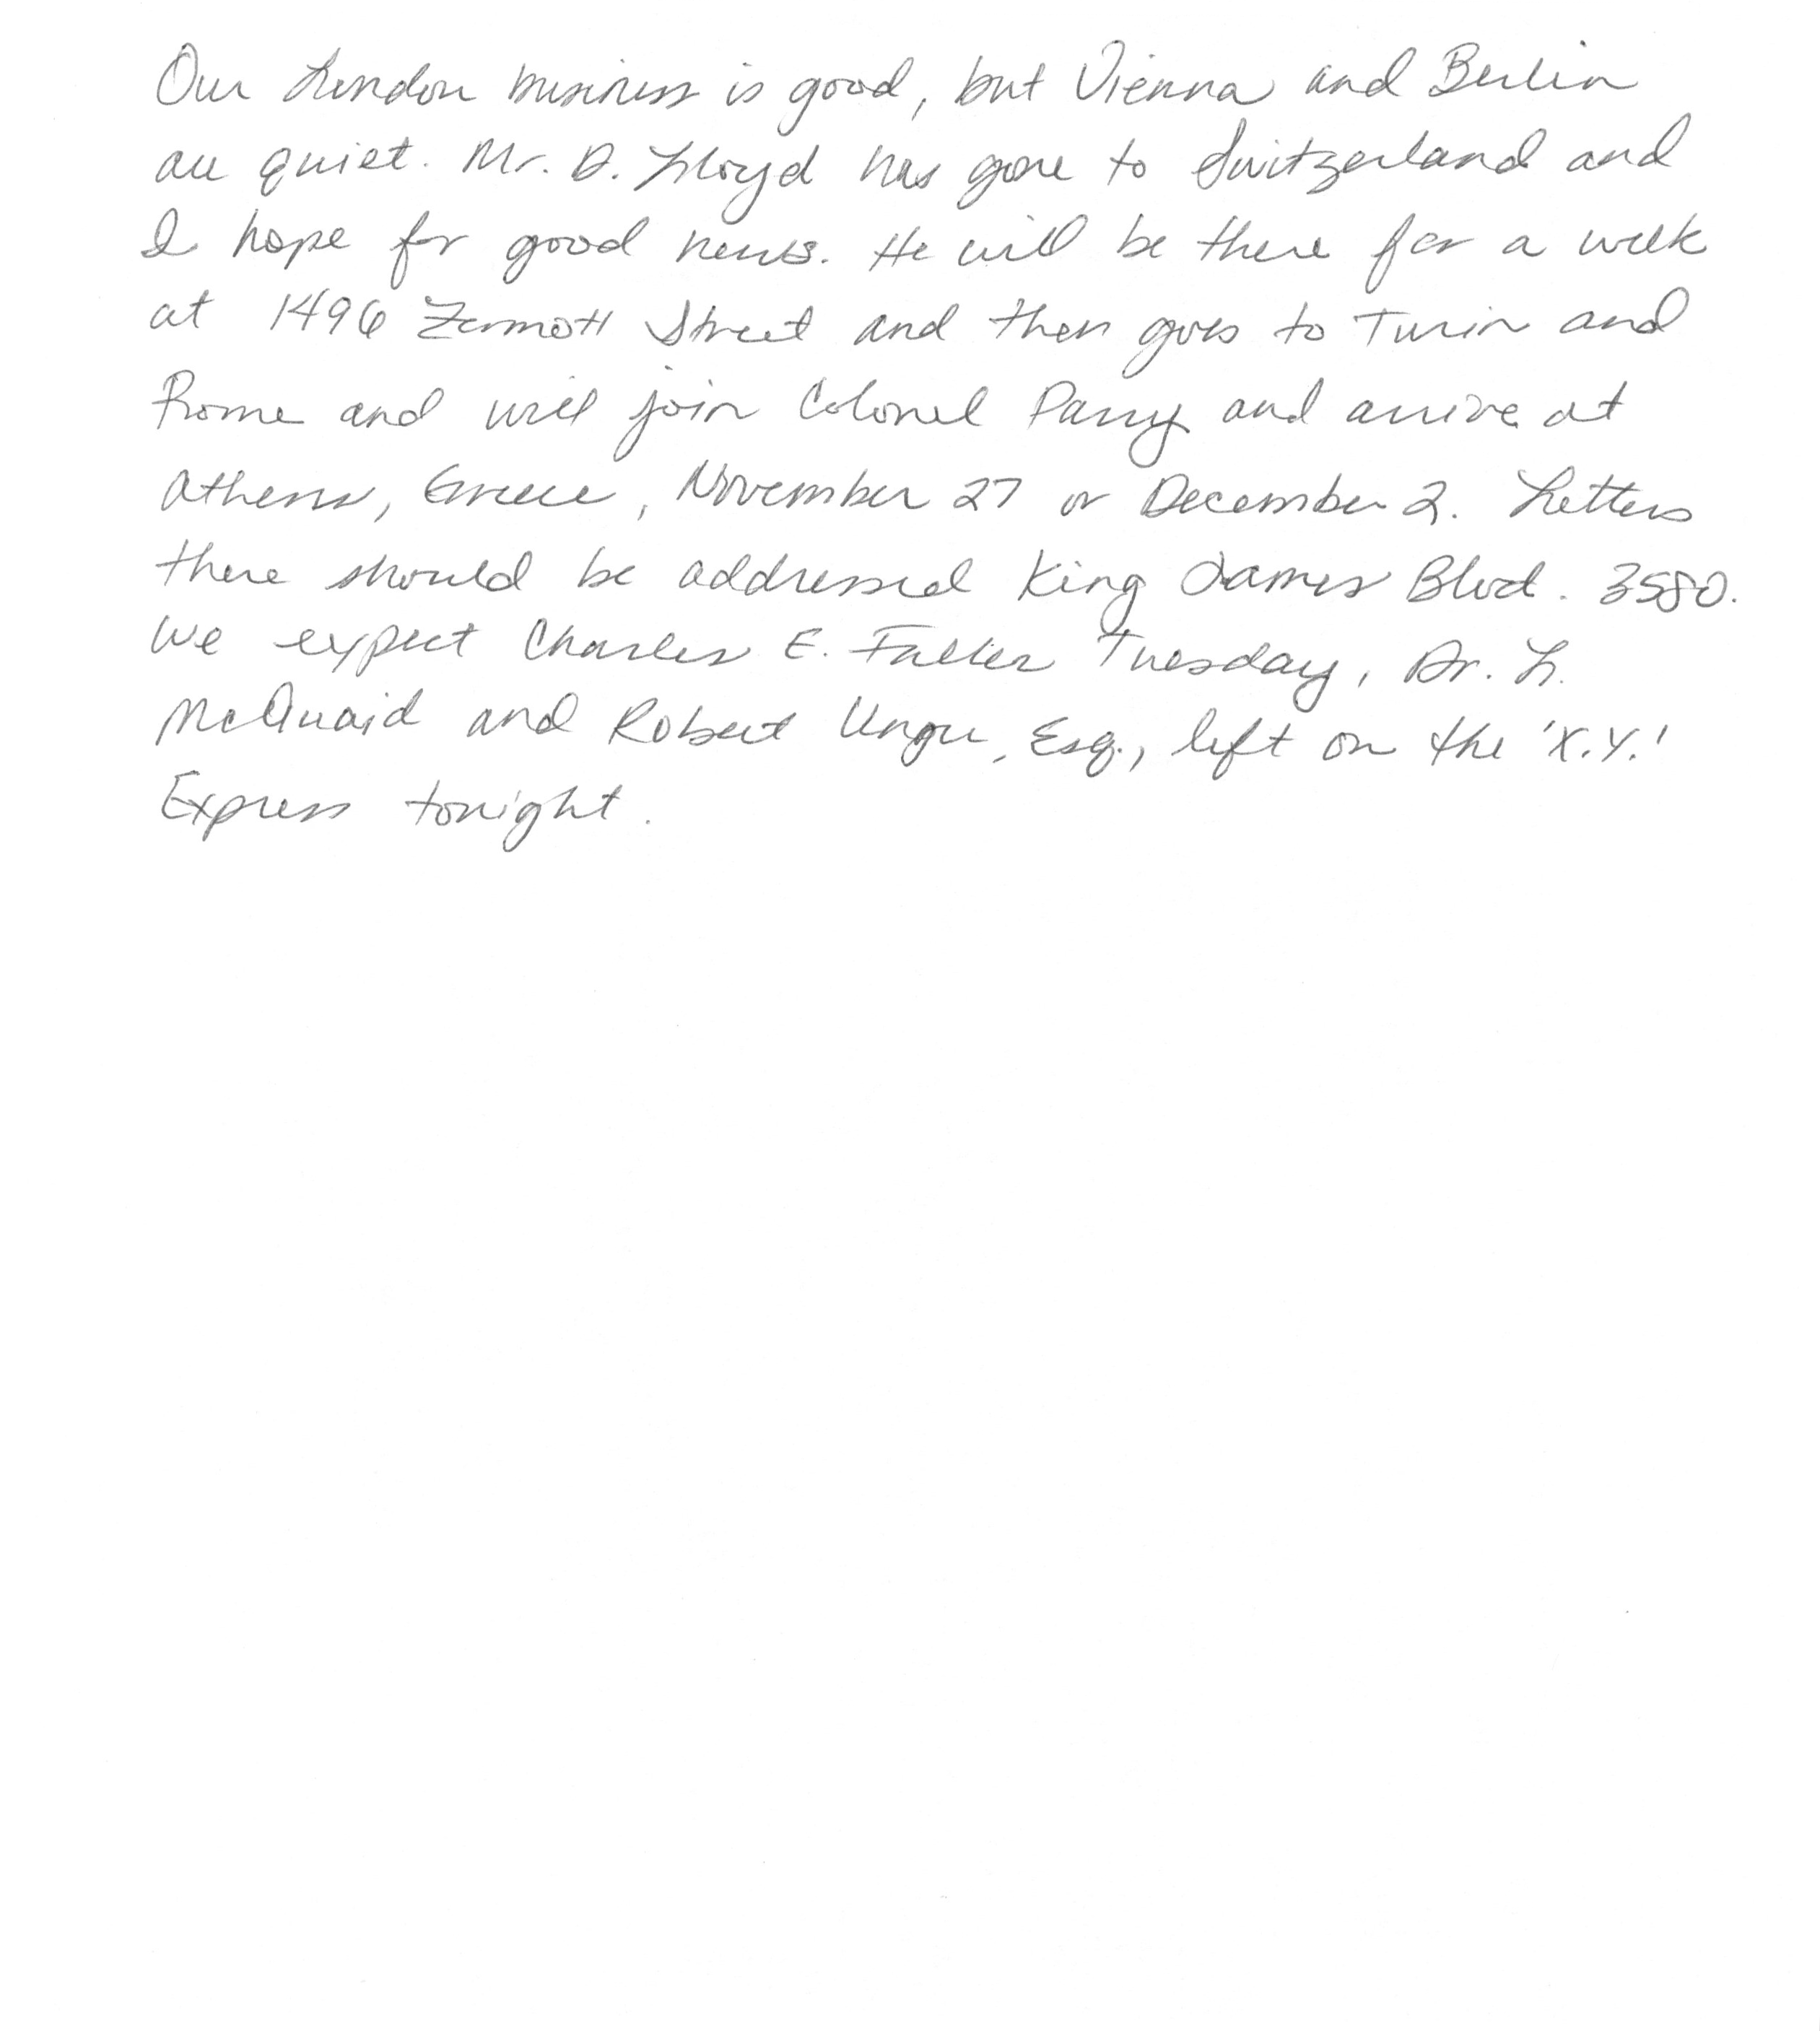 Our London business is good, but Vienna and Berlin
are quiet. Mr. D. Lloyd has gone to Switzerland and
I hope for good news. He will be there for a week
at 1496 Zermott Street and then goes to Turin and
Rome and will join Colonel Parry and arrive at
Athens, Greece, November 27 or December 2. Letters
there should be addressed King James Blvd. 3580.
We expect Charles E. Fuller Tuesday, Dr. L.
McQuaid and Robert Unger, Esq., left on the 'X.Y.'
Express tonight.